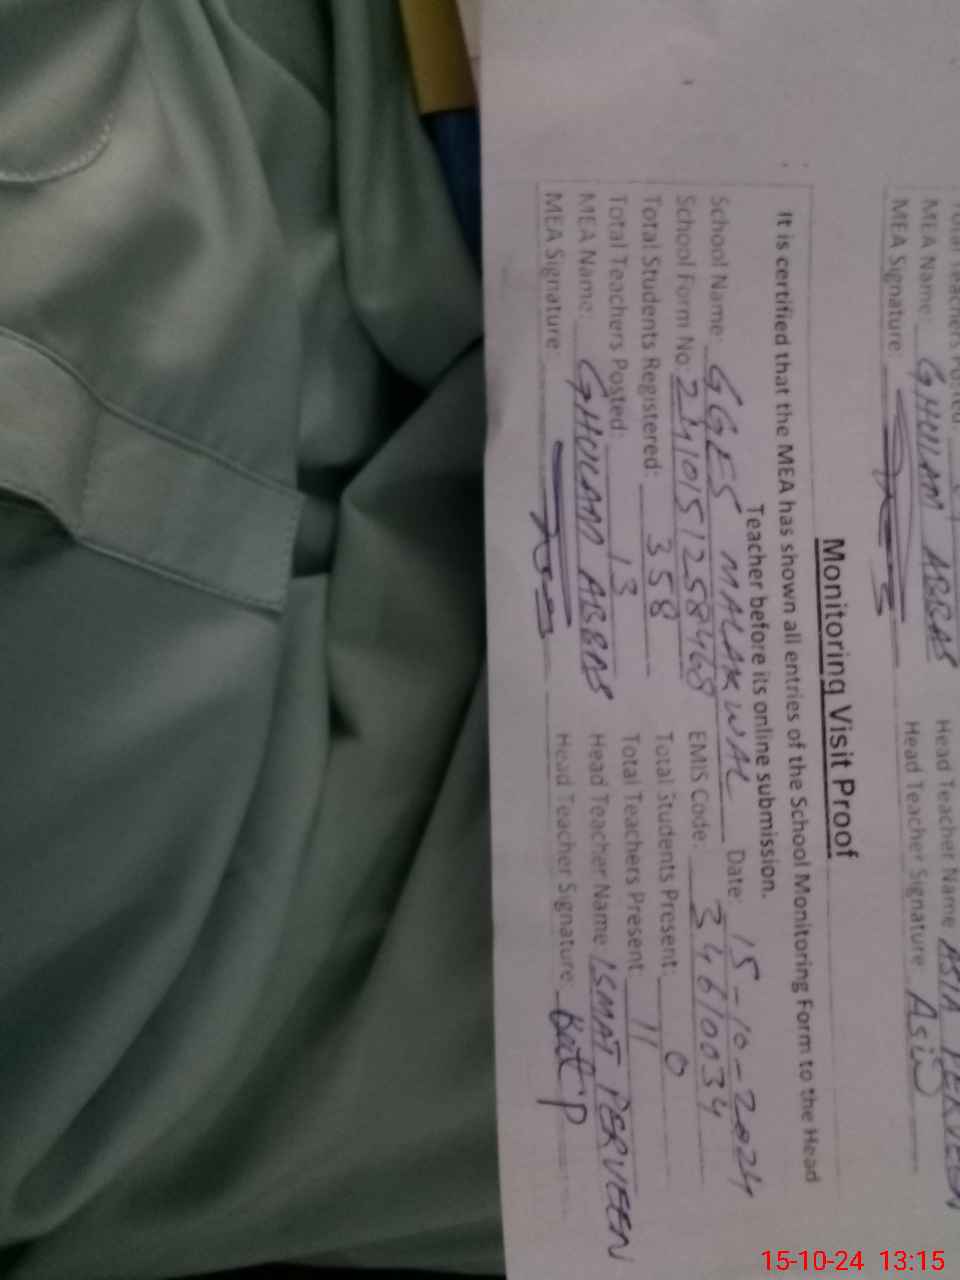 MEA Name: GHULAM ABBAS Head Teacher Name ASIA PERVEEN
MEA Signature: Head Teacher Signature Asia
Monitoring Visit Proof
It is certified that the MEA has shown all entries of the School Monitoring Form to the Head
Teacher before its online submission.
School Name: GGES MALAKWAL Date: 15-10-2024
School Form No: EMIS Code: 34610034
Total Students Registered: 358 Total Students Present: 0
Total Teachers Posted: 13 Total Teachers Present 11
MEA Name: GHULAM ABBAS Head Teacher Name ISMAT PERVEEN
MEA Signature: Head Teacher Signature:
15-10-24 13:15